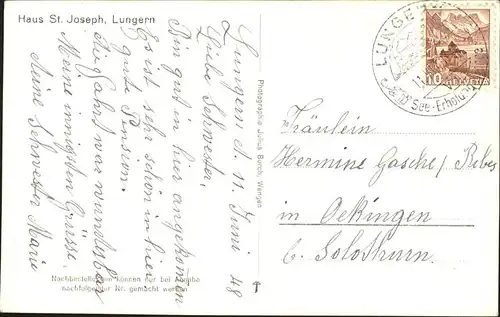 Haus St. Joseph, Lungern
Lungern d. 11. Juni 48
Liebe Schwester,
Bin gut in hier angekommen
Es ist sehr schön in hier
gute Pension.
die Fahrt war wunderbar
Meine innigsten Grüsse
deine Schwester Marie
Nachbestellungen können nur bei Angabe
nachfolgender Nr. gemacht werden
Photographie Julius Burch, Wengen
LUNGERN
See-Erholung
10 HELVETIA
Fräulein
Hermine Gasche/
in Oekingen
b. Solothurn.